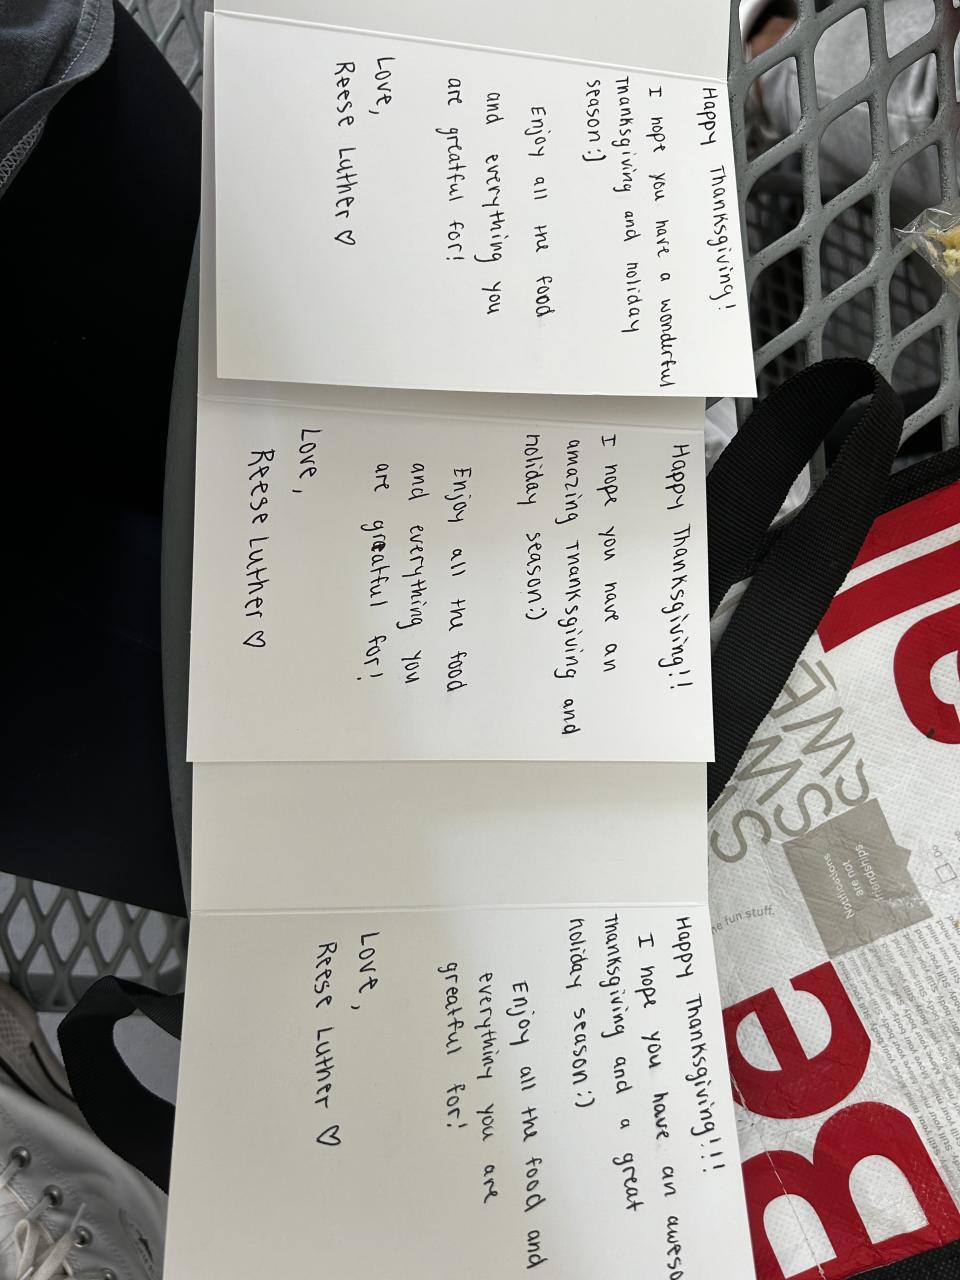 Happy Thanksgiving!
I hope you have a wonderful
Thanksgiving and holiday
season:)
Enjoy all the food
and everything you
are greatful for!
Love,
Reese Luther ♡
Happy Thanksgiving!!
I hope you have an
amazing Thanksgiving and
holiday season:)
Enjoy all the food
and everything you
are greatful for!
Love,
Reese Luther ♡
Happy Thanksgiving!!!
I hope you have an aweso
Thanksgiving and a great
holiday season:)
Enjoy all the food and
everythiny you are
greatful for!
Love,
Reese Luther ♡
Be
Notifications
are not
friendships.
fun stuff.